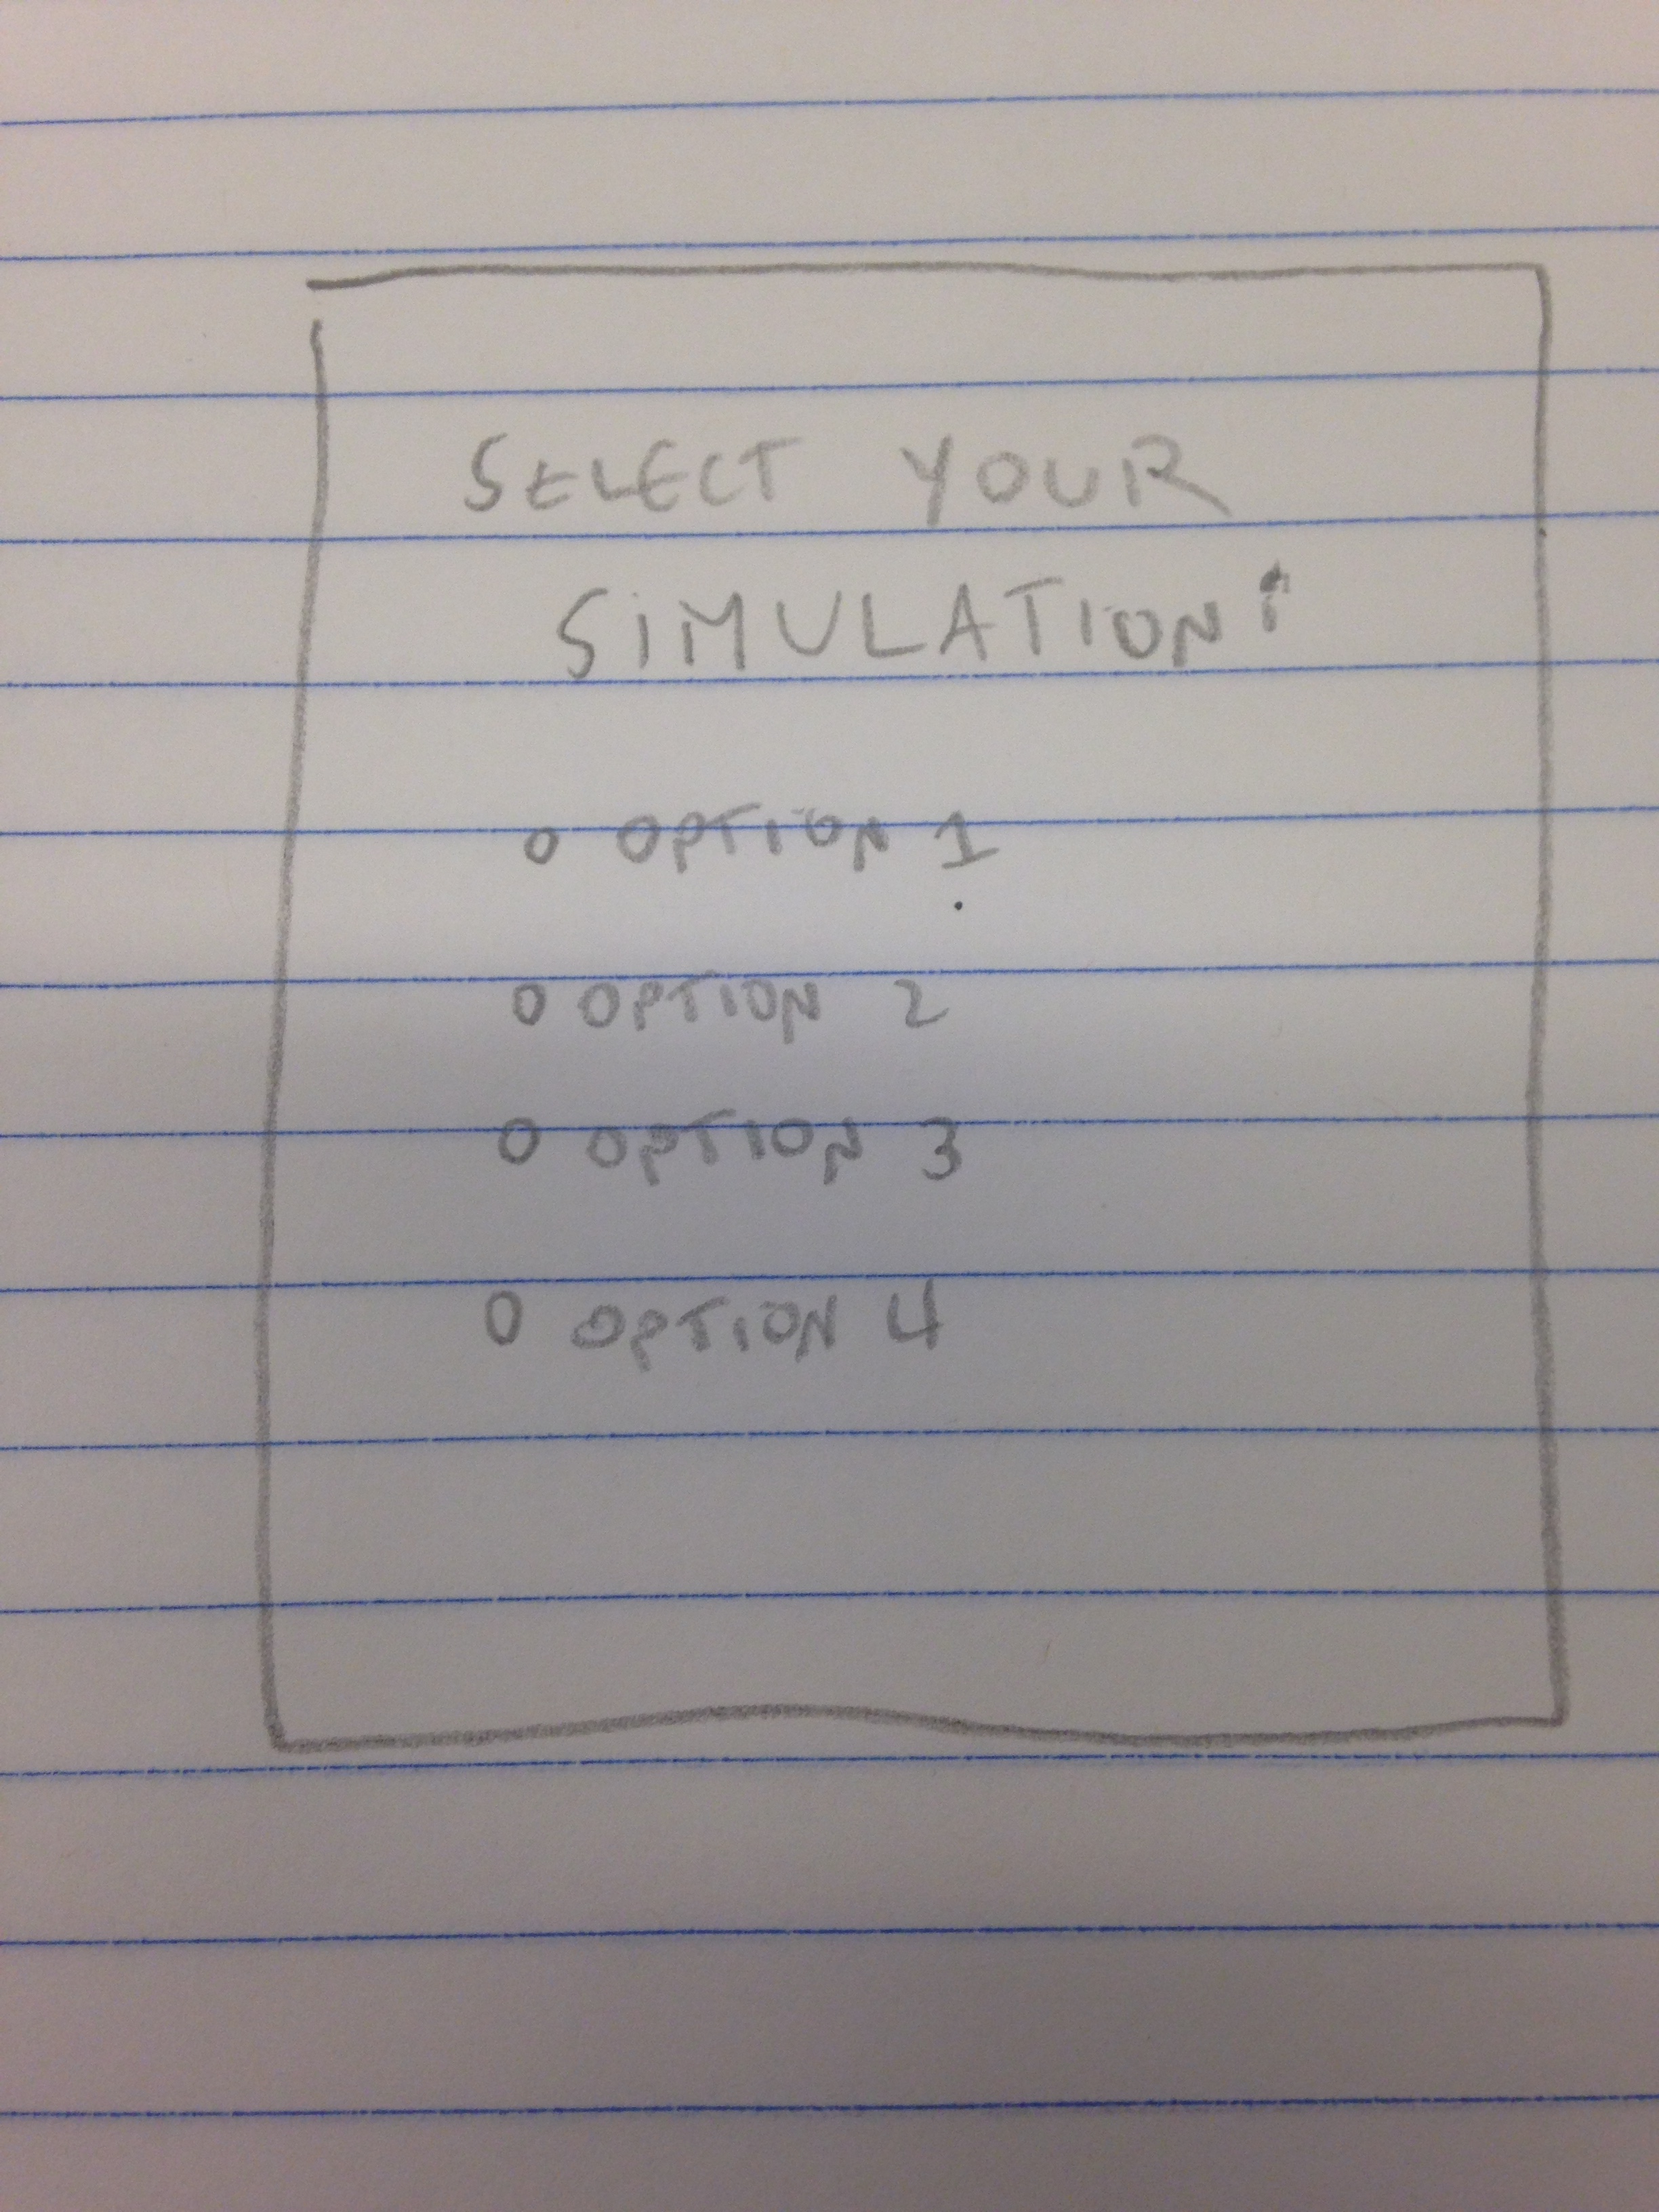 SELECT YOUR
SIMULATION:
O OPTION 1
O OPTION 2
O OPTION 3
O OPTION 4